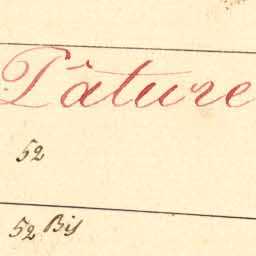 Pâture
52
52 Bis